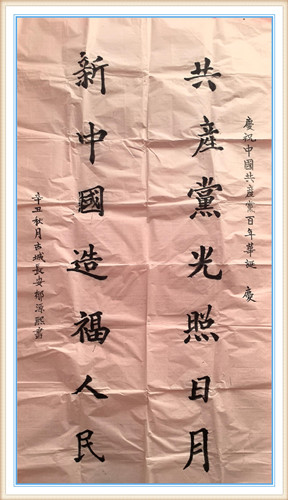 慶祝中國共產黨百年華誕 慶
共產黨光照日月
新中國造福人民
辛丑秋月古城長安鄒源熙書